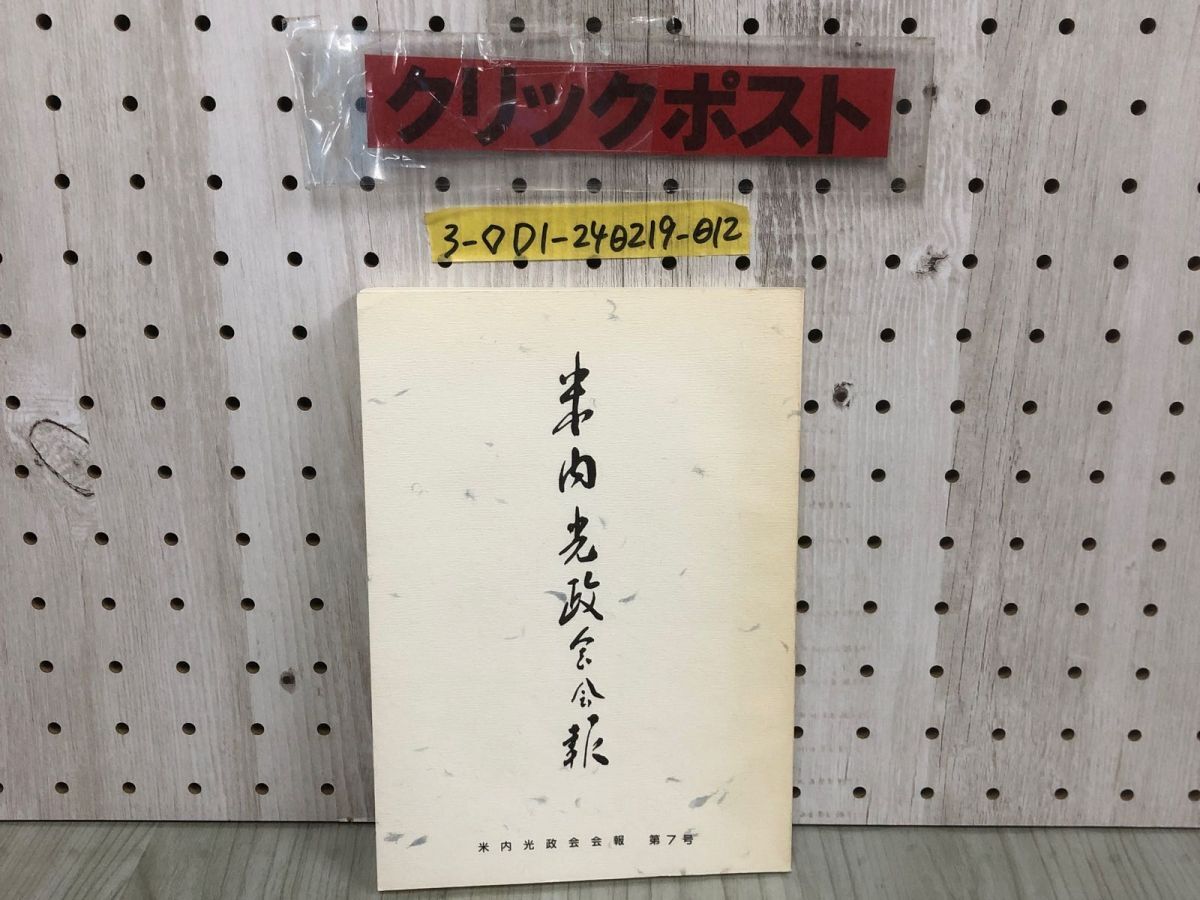 クリックポスト
3-◇D1-240219-012
米内光政会会報
米内光政会会報 第7号